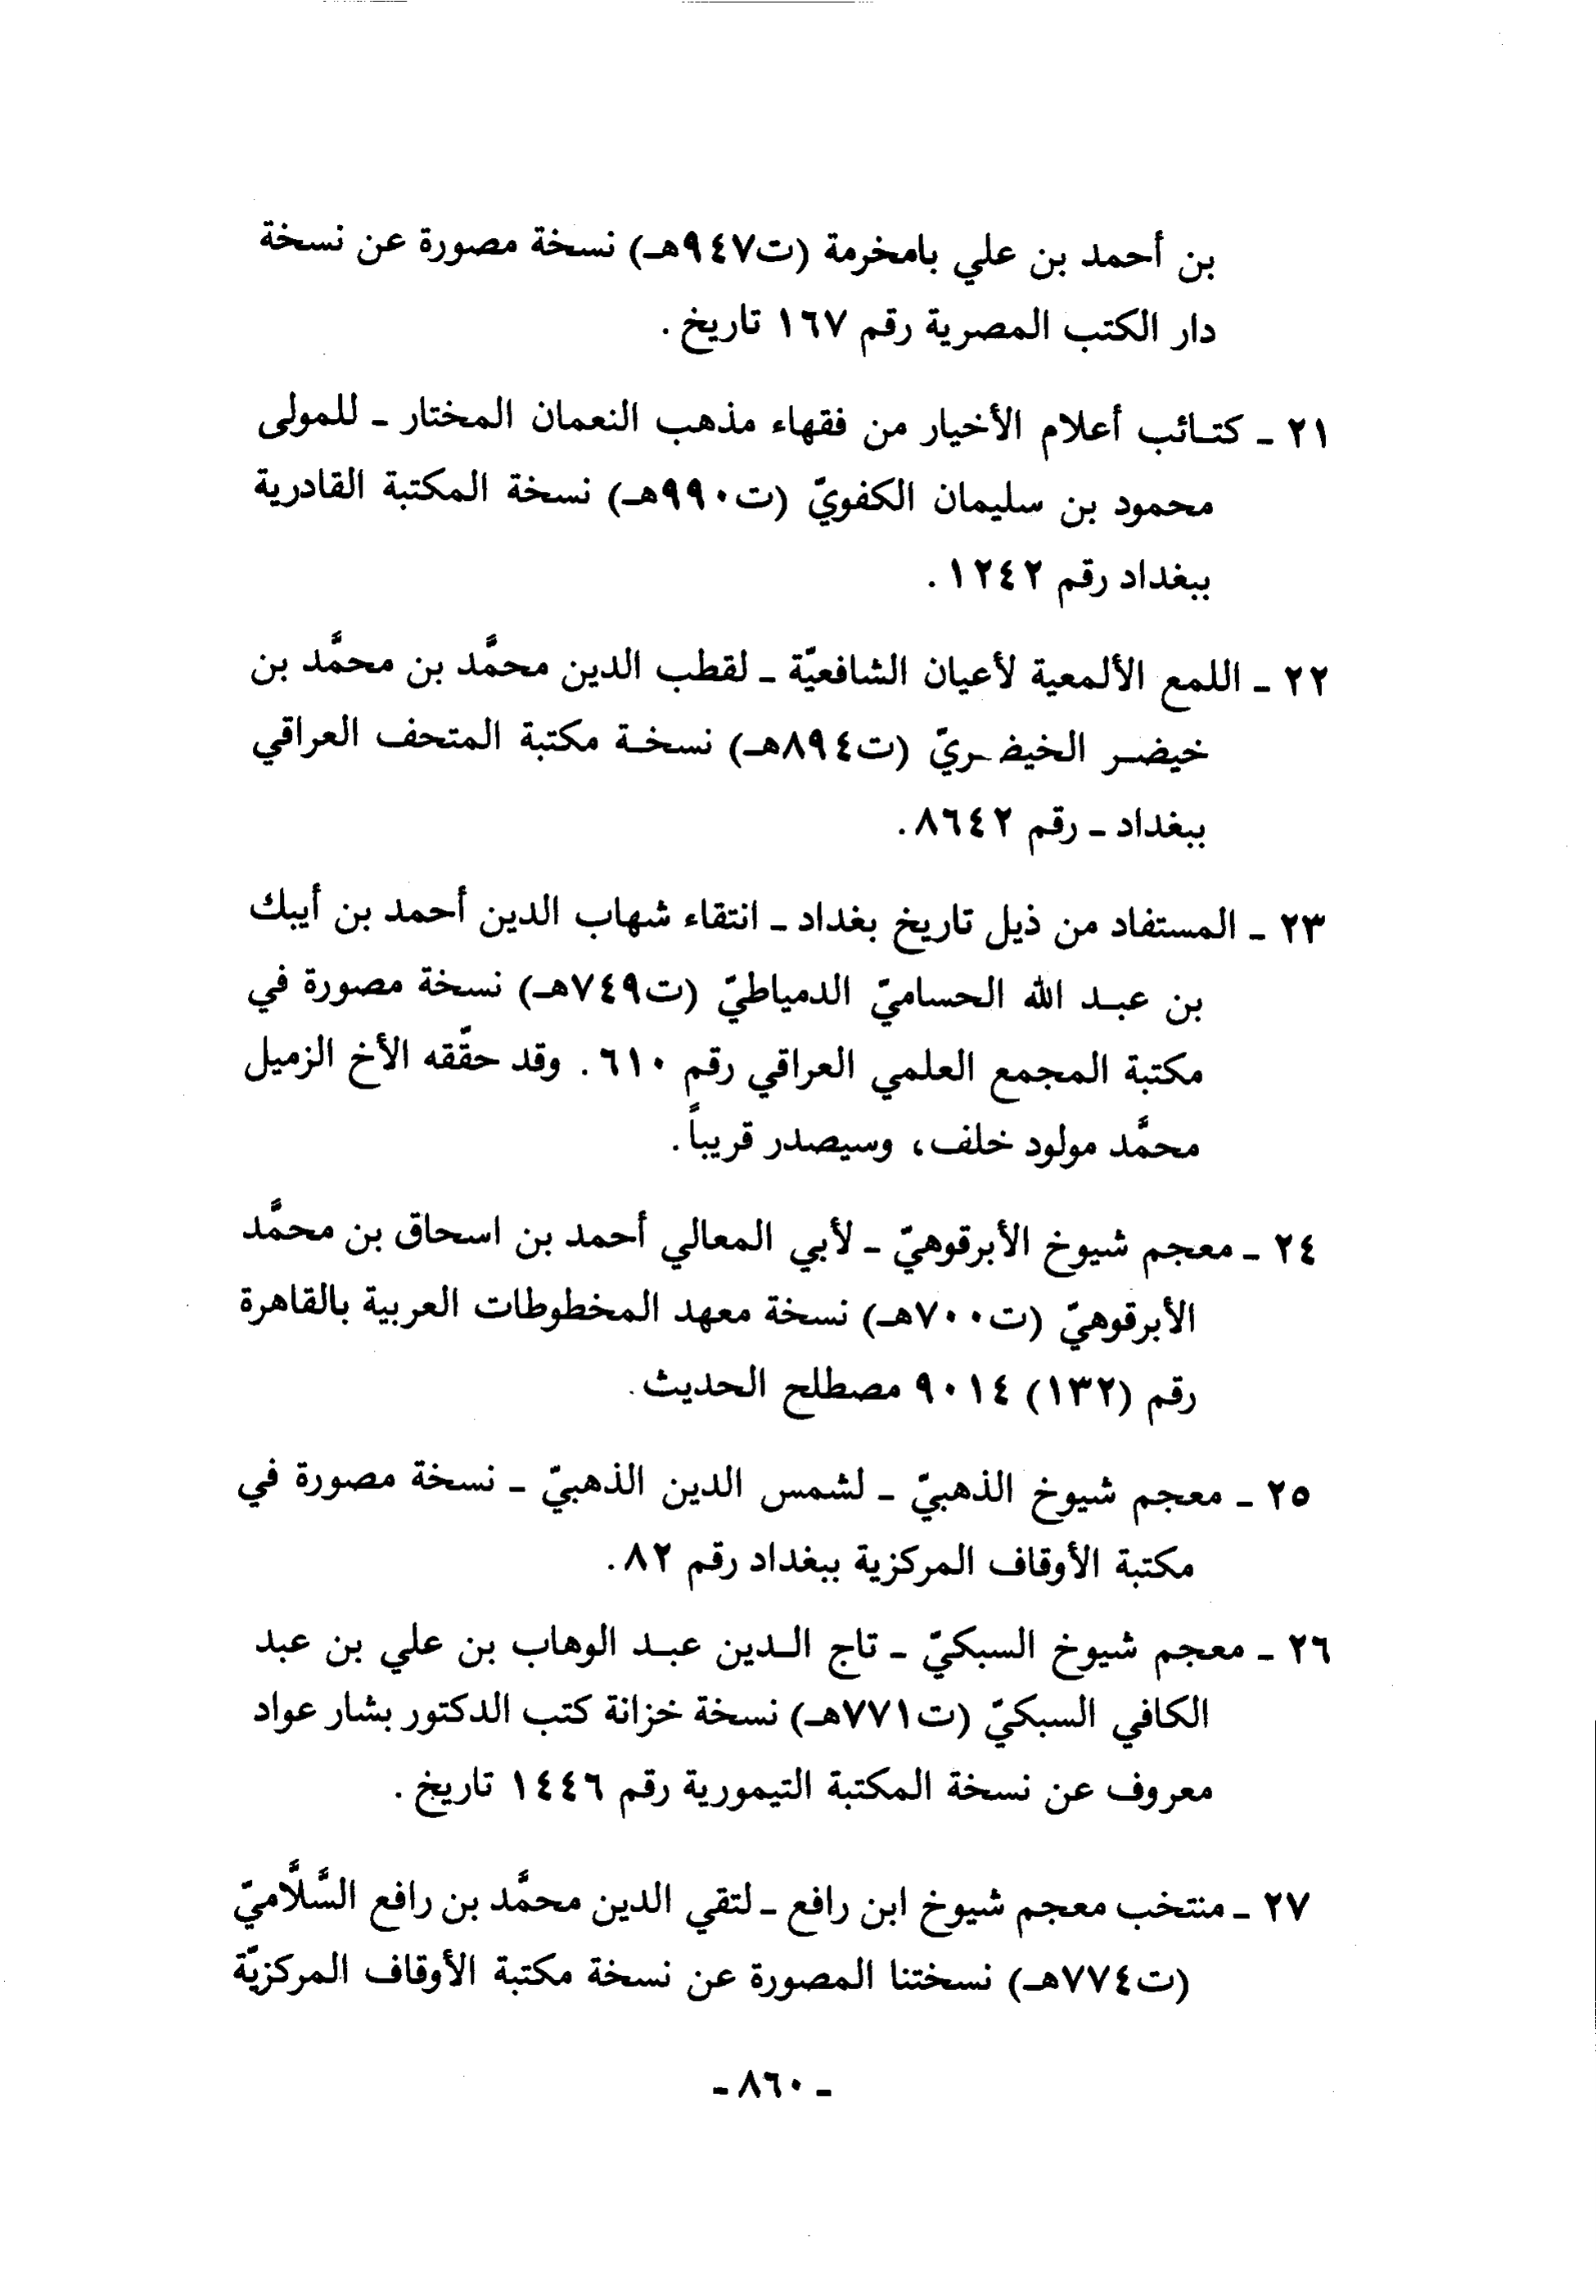 بن أحمد بن علي بامخرمة (ت٩٤٧هـ) نسخة مصورة عن نسخة
دار الكتب المصرية رقم ١٦٧ تاريخ .
٢١ - كتائب أعلام الأخيار من فقهاء مذهب النعمان المختار - للمولى
محمود بن سليمان الكفويّ (ت٩٩٠هـ) نسخة المكتبة القادرية
ببغداد رقم ١٢٤٢ .
٢٢ - اللمع الألمعية لأعيان الشافعيّة - لقطب الدين محمَّد بن محمَّد بن
خيضر الخيضريّ (ت٨٩٤هـ) نسخة مكتبة المتحف العراقي
ببغداد - رقم ٨٦٤٢.
٢٣ - المستفاد من ذيل تاريخ بغداد - انتقاء شهاب الدين أحمد بن أيبك
بن عبد الله الحساميّ الدمياطيّ (ت٧٤٩هـ) نسخة مصورة في
مكتبة المجمع العلمي العراقي رقم ٦١٠. وقد حقّقه الأخ الزميل
محمَّد مولود خلف، وسيصدر قريباً.
٢٤ - معجم شيوخ الأبرقوهيّ - لأبي المعالي أحمد بن اسحاق بن محمَّد
الأبرقوهيّ (ت٧٠٠هـ) نسخة معهد المخطوطات العربية بالقاهرة
رقم (١٣٢) ٩٠١٤ مصطلح الحديث.
٢٥ - معجم شيوخ الذهبيّ - لشمس الدين الذهبيّ - نسخة مصورة في
مكتبة الأوقاف المركزية ببغداد رقم ٨٢.
٢٦ - معجم شيوخ السبكيّ - تاج الدين عبد الوهاب بن علي بن عبد
الكافي السبكيّ (ت٧٧١هـ) نسخة خزانة كتب الدكتور بشار عواد
معروف عن نسخة المكتبة التيمورية رقم ١٤٤٦ تاريخ .
٢٧ - منتخب معجم شيوخ ابن رافع - لتقي الدين محمَّد بن رافع السَّلَّاميّ
(ت٧٧٤هـ) نسختنا المصورة عن نسخة مكتبة الأوقاف المركزيّة
- ٨٦٠ -